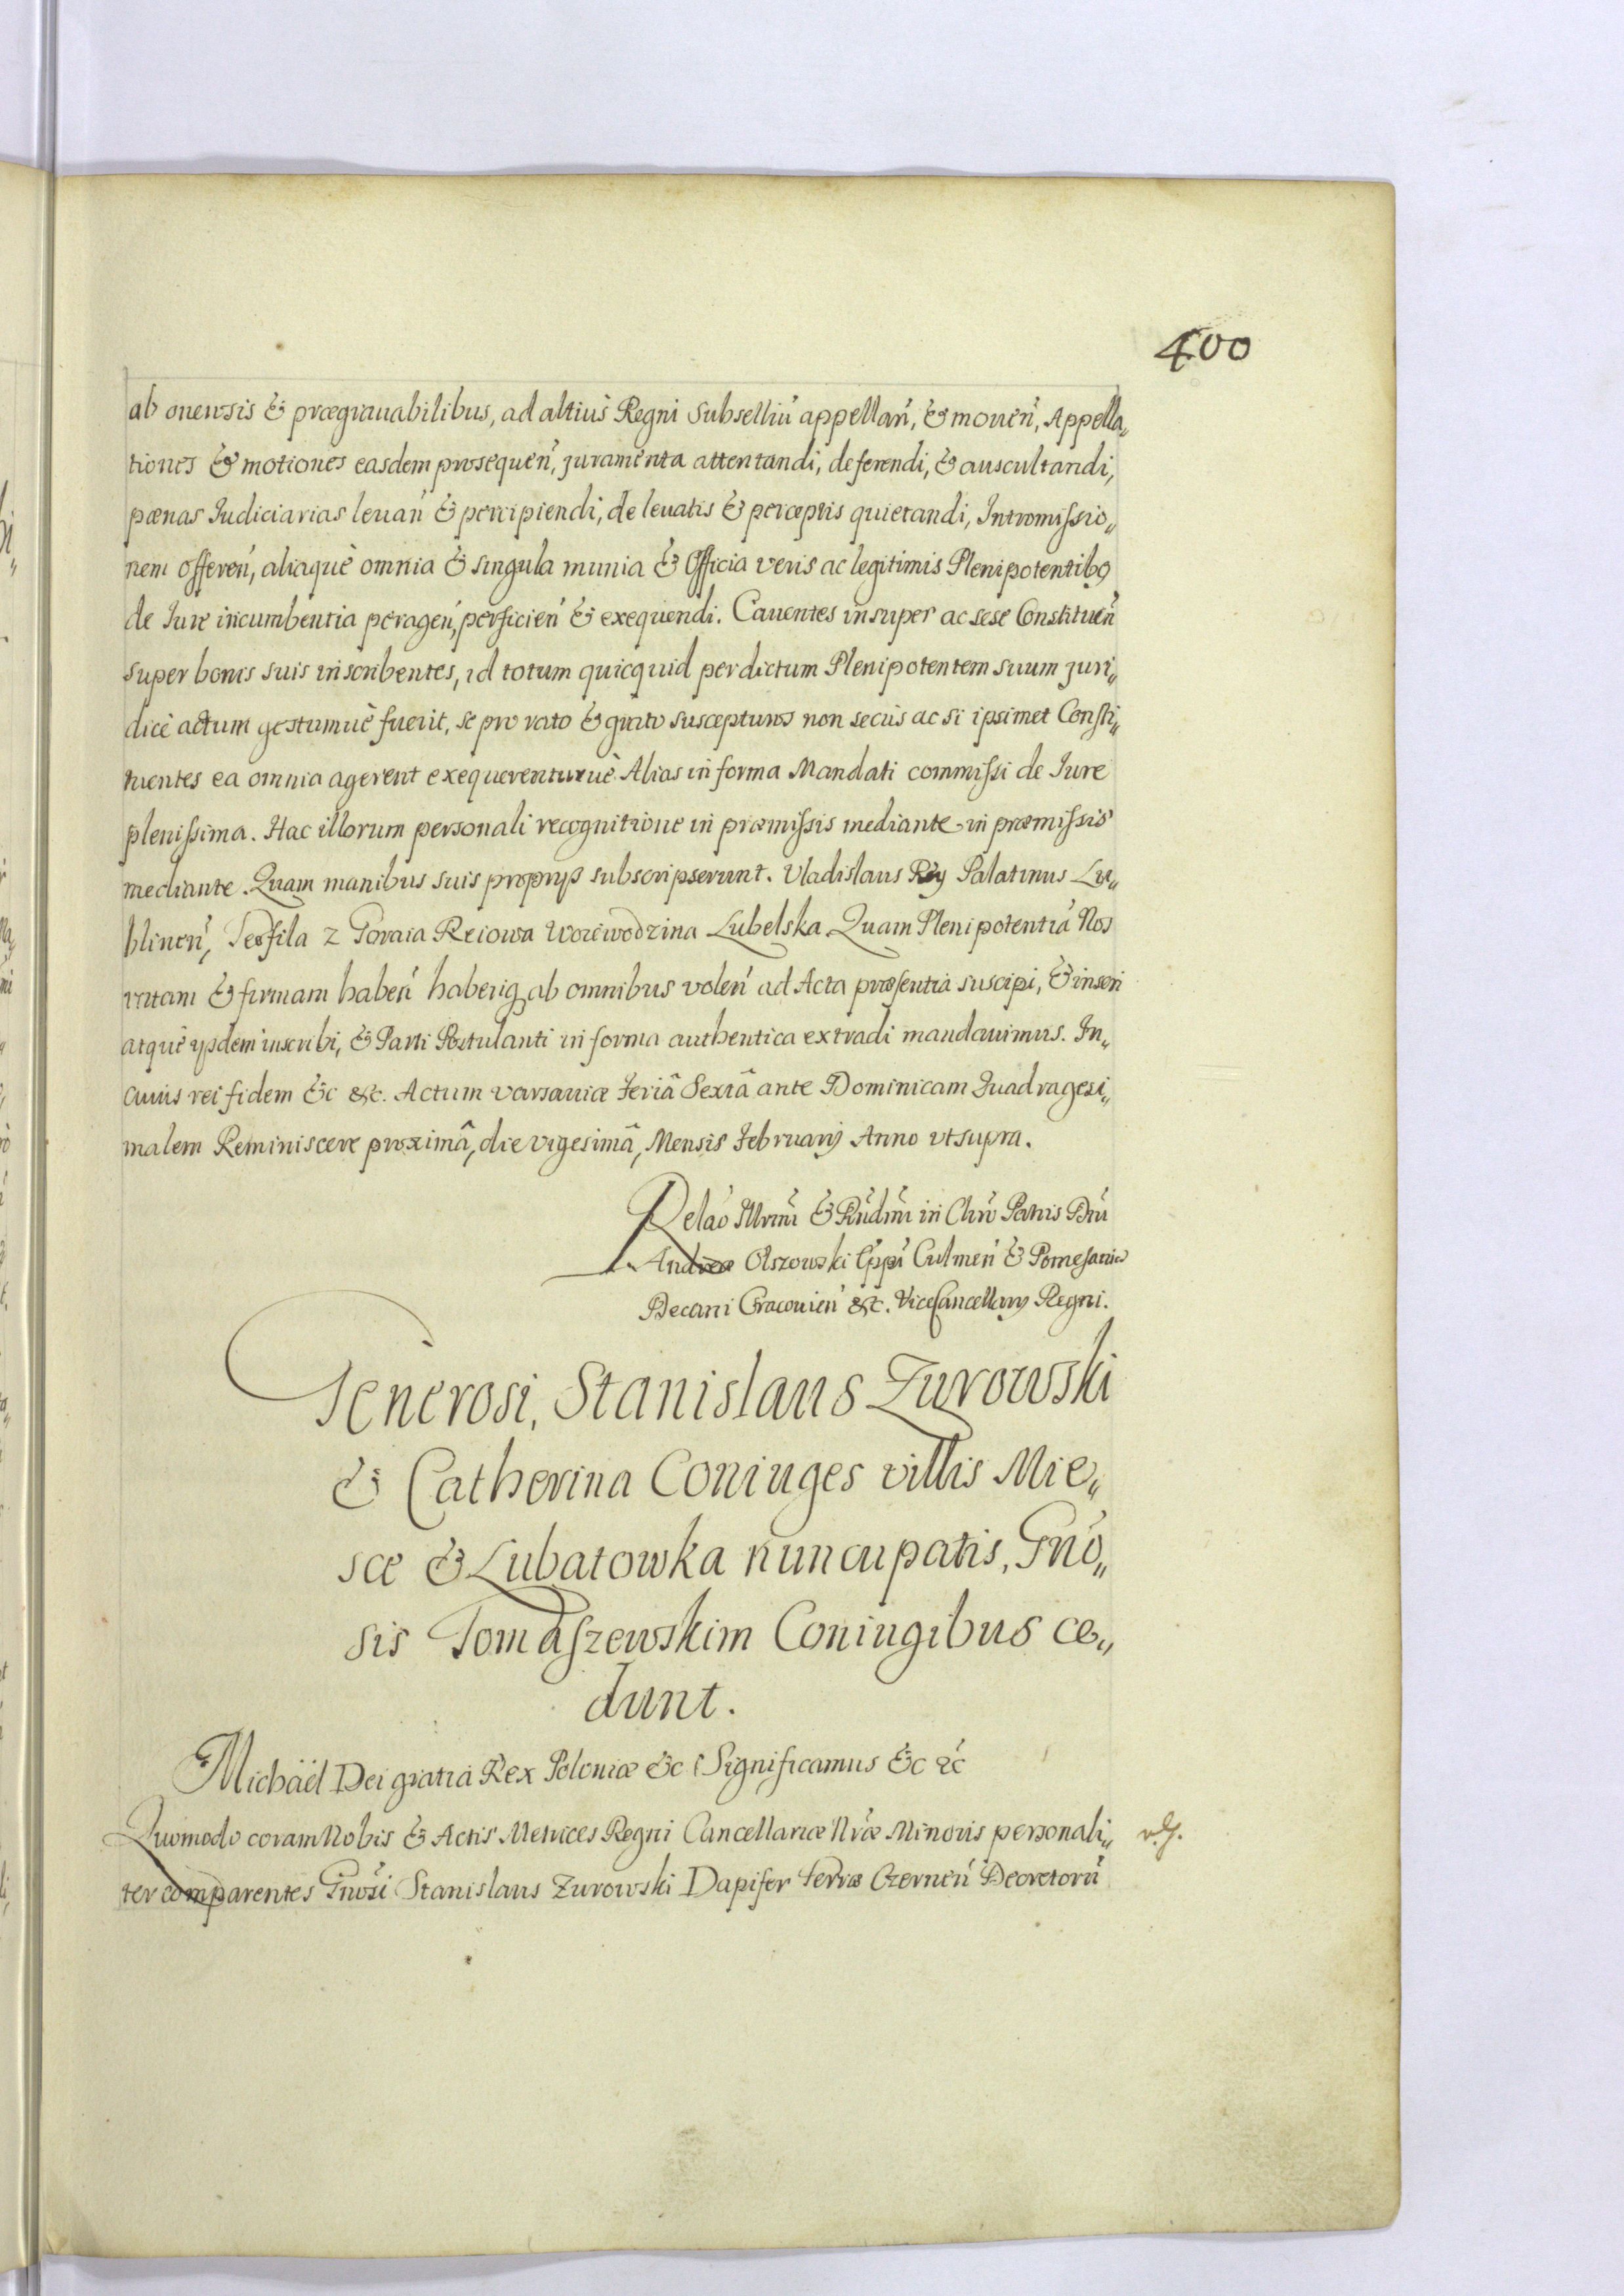 400
ab onensis & prægrauabilibus, ad altius Regni Subselliu͂ appellan͂, & mouen͂, Appella„
tiones & motiones easdem prosequen͂, juramenta attentandi, deferendi, & auscultandi,
pœnas Judiciarias leuan͂ & percipiendi, de leuatis & perceptis quietandi, Intromissio„
nem offeren͂, aliaquè omnia & singula munia & Officia veris ac legitimis Plenipotentibꝰ
de Jure incumbentia peragen͂, perficien͂ & exequendi. Cauentes insuper ac sese Constituen͂
super bonis suis inscribentes, id totum quicquid per dictum Plenipotentem suum juri„
dicè actum gestumuè fuerit, se pro rato & grato suscepturos non secùs ac si ipsimet Consti„
tuentes ea omnia agerent exequerenturuè. Alias in forma Mandati commissi de Jure
plenissima. Hac illorum personali recognitione in præmissis mediante in præmissis
mediante. Quam manibus suis proprijs subscripserunt. Vladislaus Rey Palatinus Lu„
blinen͂, Teofila z Goraia Reiowa Woiewodzina Lubelska. Quam Plenipotentia͂ Nos
ratam & firmam haben͂ haberiq; ab omnibus volen͂ ad Acta præsentia suscipi, & inseri
atquè ijsdem inscribi, & Parti Postulanti in forma authentica extradi mandauimus. In„
cuius rei fidem &c &c. Actum varsauiæ feriâ Sextâ ante Dominicam Quadragesi„
malem Reminiscere proximâ, die vigesimâ, Mensis Februarij Anno vt supra.
Relão Illrmi͂ & Rñdmi͂ in Chro͂ Patris Dni͂
Andreæ Olszowski Eppi͂ Culmen͂ & Pomesaniæ
Decani Cracouien͂ &c. ViceCancellarij Regni.
Generosi, Stanislaus Zurowski
& Catherina Coniuges villis Mie„
sce & Lubatowka nuncupatis, Gño„
sis Tomaszewskim Coniugibus ce„
dunt.
Michaël Dei gratia Rex Poloniæ &c Significamus &c &c
Quomodo coram Nobis & Actis Metrices Regni Cancellariæ Nr͂æ Minoris personali„
ter comparentes Gnosi͂ Stanislaus Zurowski Dapifer terræ Czernen͂ Decretoru͂